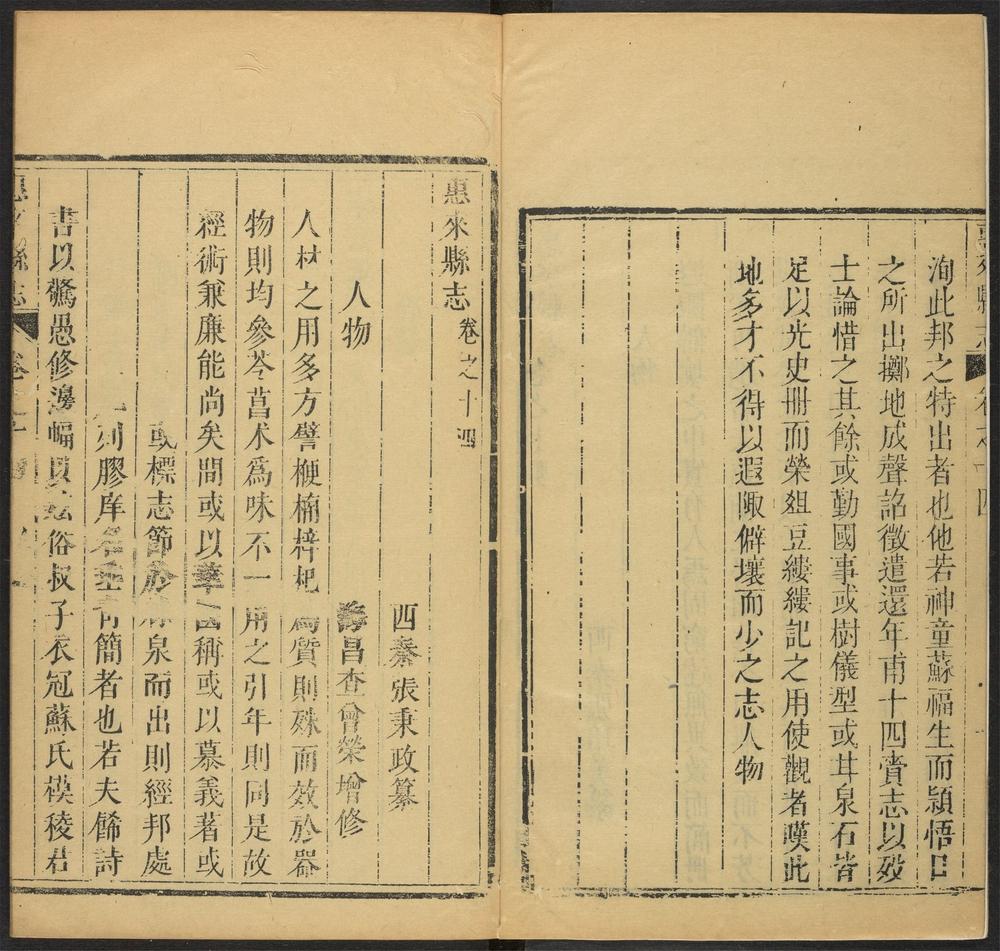 惠來縣志 卷之十四
洵此邦之特出者也他若神童蘇福生而頴悟日
之所出擲地成聲詔徵遣還年甫十四賫志以歿
士論惜之其餘或勤國事或樹儀型或甘泉石皆
足以光史冊而榮俎豆縷縷記之用使觀者嘆此
地多才不得以遐陬僻壤而少之志人物
惠來縣志 卷之十四
西秦張秉政纂
人物 海昌查曾榮增修
人材之用多方譬梗楠梓杞為質則殊而效於器
物則均參苓菖术為味不一用之引年則同是故
經術兼廉能尚矣間或以華國稱或以慕義著或
或標志節於泉而出則經邦處
列膠庠名垂青簡者也若夫餙詩
書以驚愚修邊幅以俗叔子衣冠蘇氏模稜君
惠來縣志 卷之十四 一